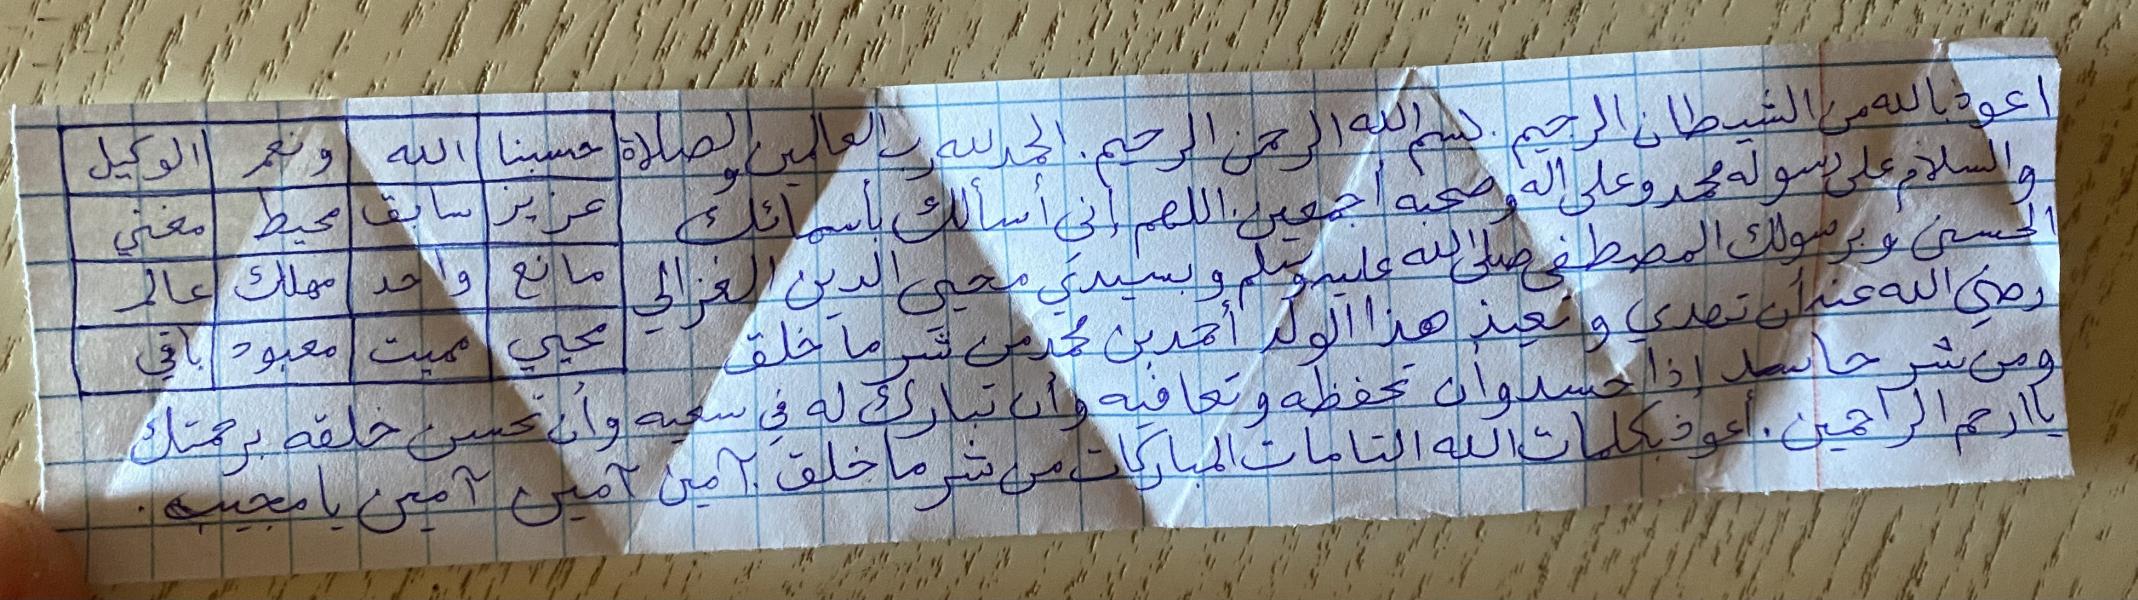 اعوذ بالله من الشيطان الرجيم. بسم الله الرحمن الرحيم. الحمد لله رب العالمين والصلاة
والسلام على رسوله محمد وعلى آله وصحبه أجمعين. اللهم إني أسألك بأسمائك
الحسنى وبرسولك المصطفى صلى الله عليه وسلم وبسيدي محيي الدين الغزالي
رضي الله عنه أن تهدي وتعيذ هذا الولد أحمد بن محمد من شر ما خلق
ومن شر حاسد إذا حسد وأن تحفظه وتعافيه وأن تبارك له في سعيه وأن تحسن خلقه برحمتك
يا ارحم الراحمين. أعوذ بكلمات الله التامات المباركات من شر ما خلق. آمين آمين آمين يا مجيب.
حسبنا الله ونعم الوكيل
عزيز سابق محيط مغني
مانع واحد مهلك عالم
محيي مميت معبود باقي